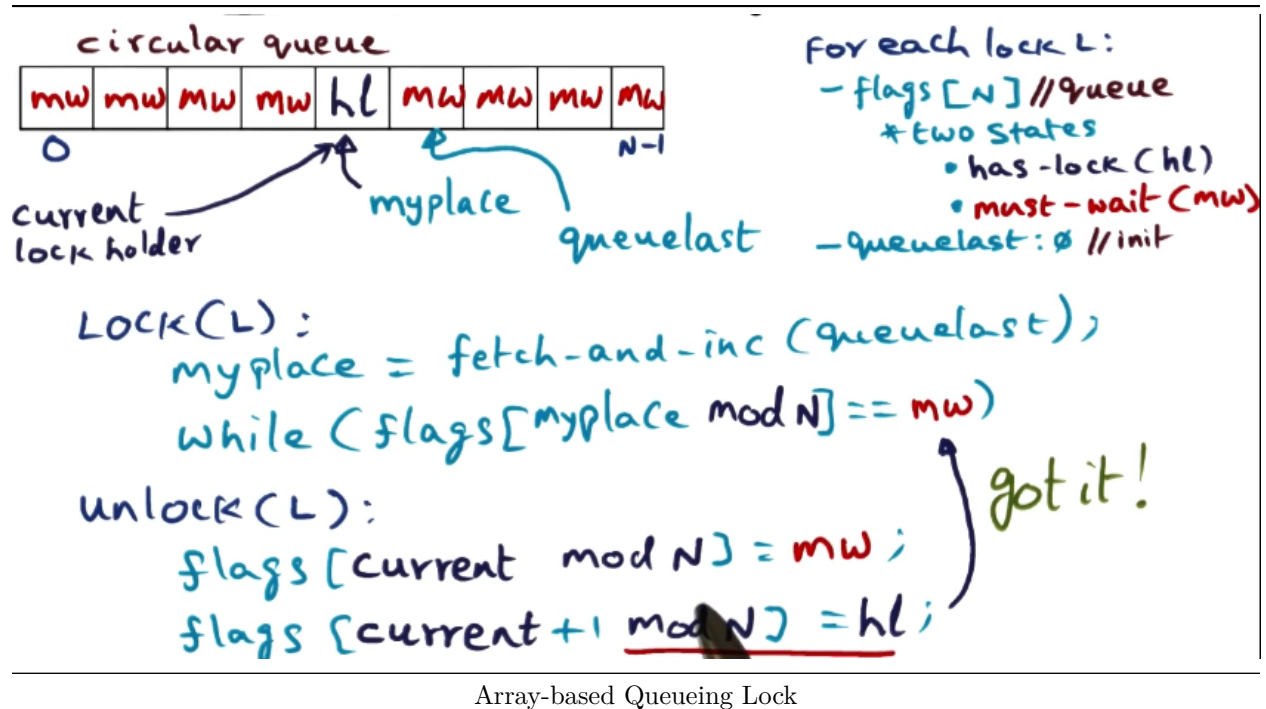 circular queue
mw mw mw mw hl mw mw mw mw
0 N-1
current
lock holder
myplace
queuelast
For each lock L:
- flags [N] //queue
* two states
• has-lock (hl)
• must-wait (mw)
- queuelast: ø //init
LOCK(L):
myplace = fetch-and-inc (queuelast);
while (flags[myplace mod N] == mw)
unlock(L):
flags [current mod N] = mw;
flags [current +1 mod N] = hl;
got it!
Array-based Queueing Lock